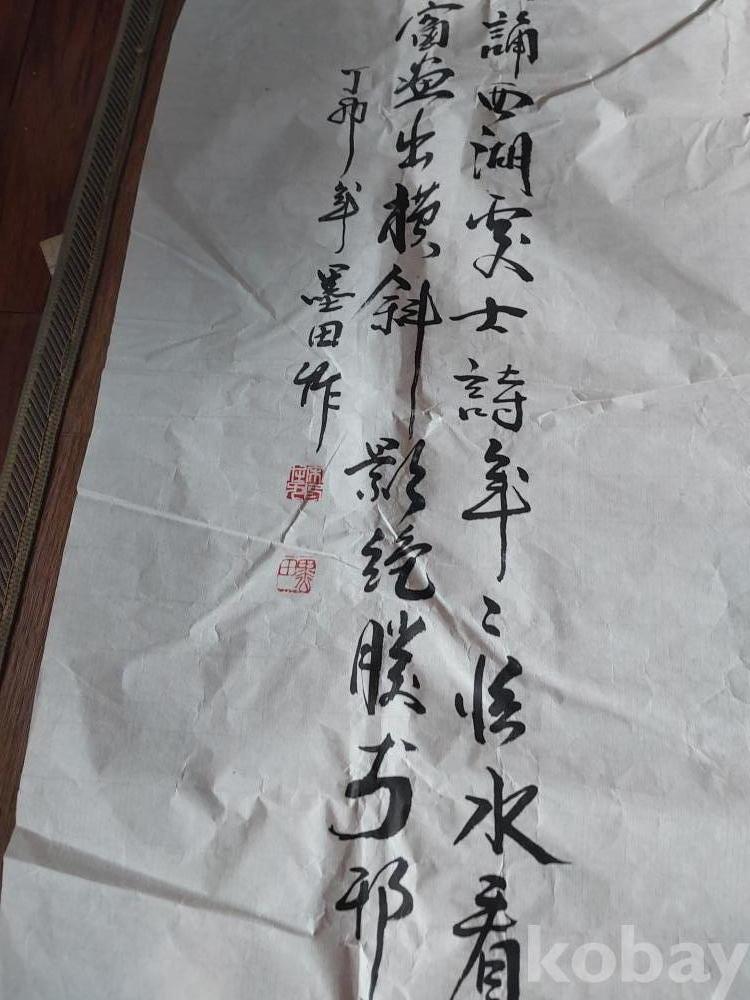 誦西湖處士詩年〻臨水看
窗畫出橫斜影絕勝前邨
丁卯年 墨田作
墨田
kobay